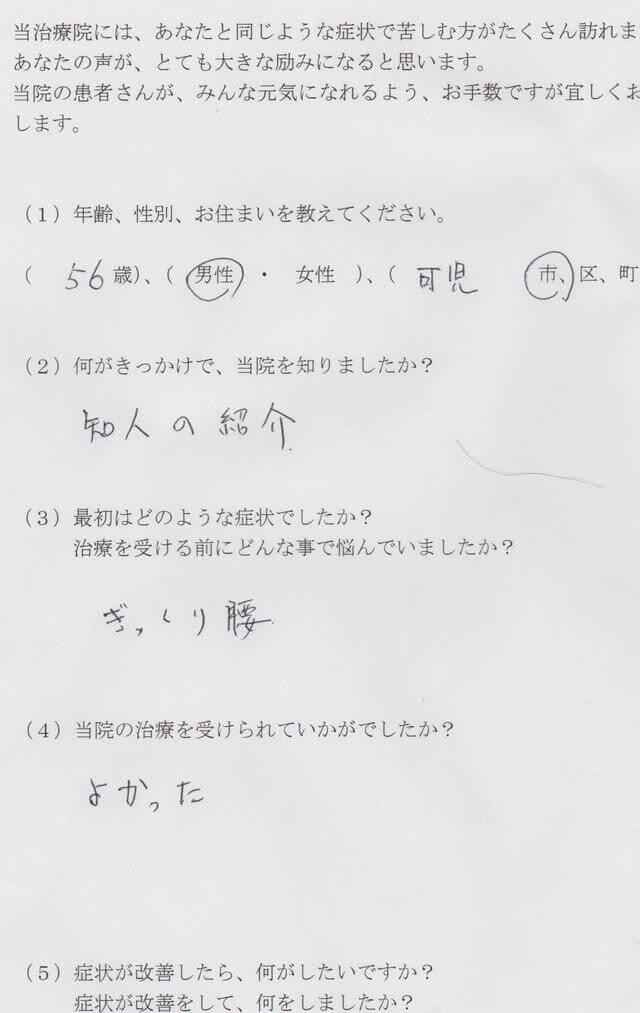 当治療院には、あなたと同じような症状で苦しむ方がたくさん訪れま
あなたの声が、とても大きな励みになると思います。
当院の患者さんが、みんな元気になれるよう、お手数ですが宜しくお
します。
（１）年齢、性別、お住まいを教えてください。
（ 56 歳）、（ 男性 ・ 女性 ）、（ 可児 市、区、町
（２）何がきっかけで、当院を知りましたか？
知人の紹介
（３）最初はどのような症状でしたか？
治療を受ける前にどんな事で悩んでいましたか？
ぎっくり腰
（４）当院の治療を受けられていかがでしたか？
よかった
（５）症状が改善したら、何がしたいですか？
症状が改善をして、何をしましたか？